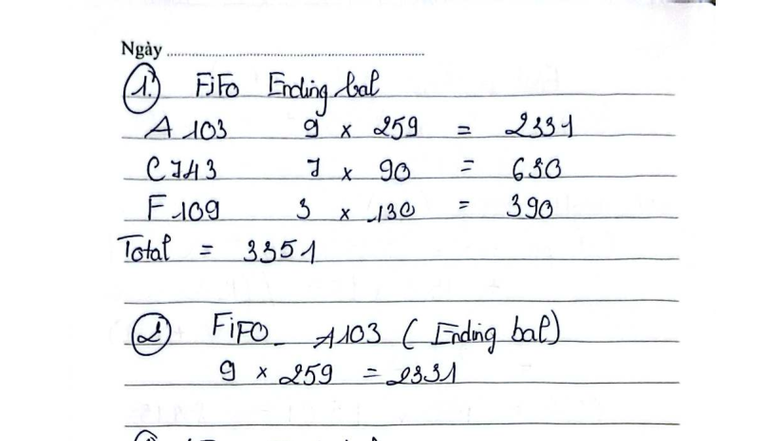 Ngày
1. FiFo Ending bal
A 103 9 x 259 = 2331
C743 7 x 90 = 630
F109 3 x 130 = 390
Total = 3351
2 FiFO - A103 (Ending bal)
9 x 259 = 2331